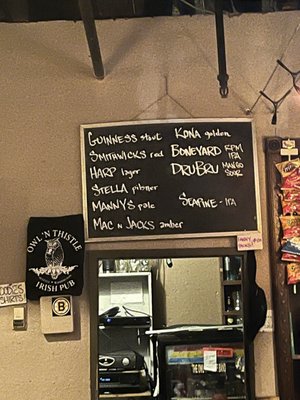 GUINNESS stout
SMITHWICKS red
HARP lager
STELLA pilsner
MANNYS pale
MAC N JACKS amber
KONA golden
BONEYARD RPM IPA
DRUBRU MANGO SOUR
SEAFINE - IPA
OWL N' THISTLE
IRISH PUB
B